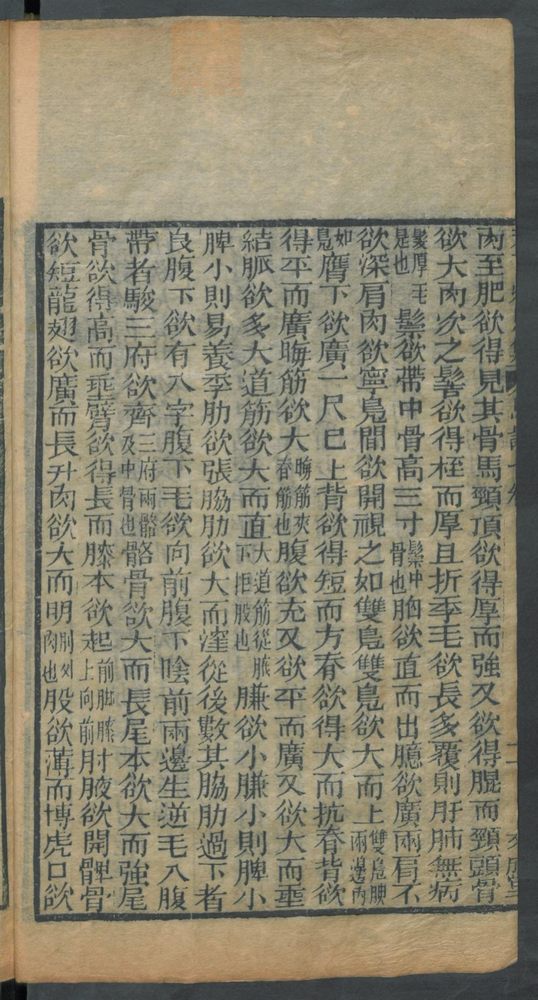 肉至肥欲得見其骨馬頸頂欲得厚而強又欲得䐊而頸頭骨
欲大肉次之髻欲得桎而厚且折季毛欲長多覆則肝肺無病
髮厚毛是也鬃欲帶中骨高三寸鬃中骨也胸欲直而出臆欲廣兩肩不
欲深肩肉欲寧鳧間欲開視之如雙鳧雙鳧欲大而上雙鳧胂兩邊肉
如鳧膺下欲廣一尺已上背欲得短而方脊欲得大而抗脊背欲
得平而廣晦筋欲大晦筋夾春筋也腹欲充又欲平而廣又欲大而垂
結脈欲多大道筋欲大而直大道筋從腋下拒股也膁欲小膁小則脾小
脾小則易養季肋欲張脇肋欲大而窪從後數其脇肋過下者
良腹下欲有八字腹下毛欲向前腹下陰前兩邊生逆毛入腹
帶者駿三府欲齊三府兩髂及中骨也髂骨欲大而長尾本欲大而強尾
骨欲得高而垂臂欲得長而膝本欲起前脚膝上向前肘腋欲開髀骨
欲短龍翅欲廣而長升肉欲大而明肉也股欲薄而博虎口欲